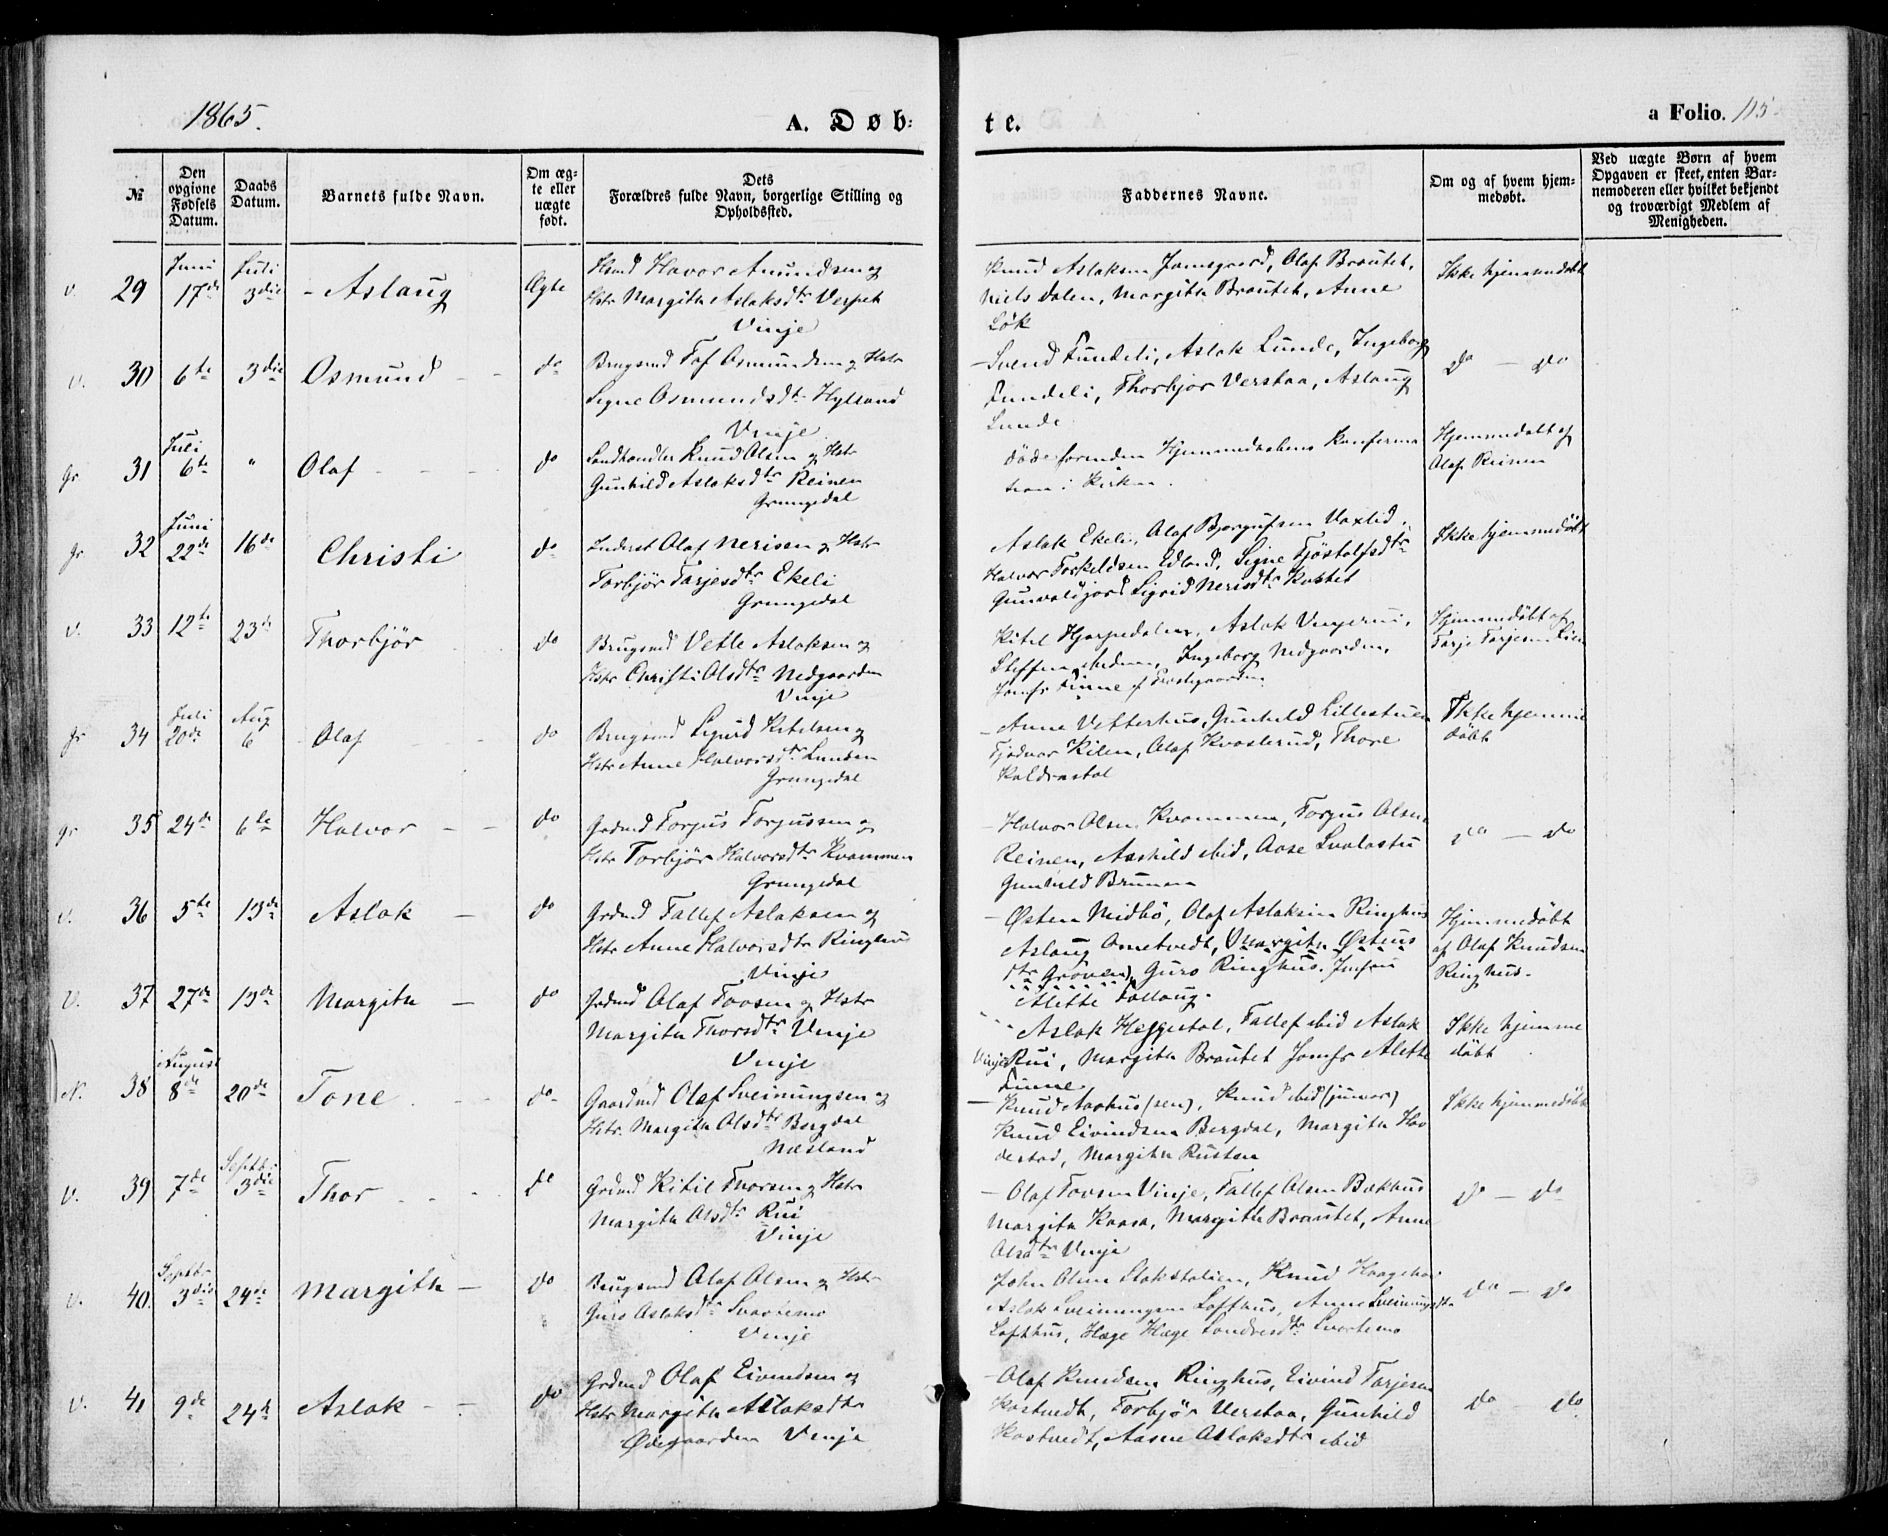 1865.
A. Døb-
te.
a Folio. 115
№
Den opgivne Fødsels Datum.
Daabs Datum.
Barnets fulde Navn.
Om ægte eller uægte født.
Dets Forældres fulde Navn, borgerlige Stilling og Opholdssted.
Faddernes Navne.
Om og af hvem hjemmedøbt.
Ved uægte Børn af hvem Opgaven er skeet, enten Barnemoderen eller hvilket bekjendt og troværdigt Medlem af Menigheden.
v. 29 Juni 17de Juli 3die Aslaug Ægte
Hsmd Havor Amundsen og
Hstr Margith Aslaksdtr Verpet
Vinje
Knud Aslaksen Jamsgaard, Olaf Brautet,
Niels Dalen, Margith Brautet, Anne
Løk
Ikke hjemmedøbt
v. 30 6te 3die Osmund do
Brugsmd Taf Osmundsen og Hstr
Signe Osmundsdtr Hylland
Vinje
Svend Fundeli, Aslak Lunde, Ingeborg
Fundeli, Thorbjør Verstaa, Aslaug
Lunde
do - do
gr 31 Juli 6te " Olaf do
Landhandler Knud Olsen og Hstr
Gunhild Aslaksdtr Reinen
Grungedal
døde forinden Hjemmedaabens Konferma
tion i Kirken.
Hjemmedøbt af
Olaf Reinen
gr 32 Juni 22de 16de Christi do
Inderst Olaf Nerisen og Hstr
Torbjør Tarjesdtr Ekeli
Grungedal
Aslak Ekeli, Olaf Bjorgufsen Vaxlid,
Halvor Torkeldsen Edland, Signe Tjøstolfsdtr
Gunvaldjord Sigrid Nerisdtr Kostet
Ikke hjemmedøbt
v. 33 12te 23de Thorbjør do
Brugsmd Vetle Aslaksen og
Hstr Christi Olsdtr Nedgaarden
Vinje
Kitel Hjarpedalen, Aslak
Steffen Ingeborg Nedgaarden,
Jomfr Finne
Hjemmedøbt af
Tarje Tarjesen Lien
gr 34 Juli 20de Aug 6 Olaf do
Brugsmd Sigurd Ketelsen og
Hstr Anne Halvorsdtr Lunden
Grungedal
Anne Vetterhus, Gunhild Lillestuen
Tjodvor Kilen, Olaf Kvosterud, Thore
Koldrastol
Ikke hjemme
døbt
gr 35 24de 6te Halvor do
Grdmd Torjus Torjussen og
Hstr Torbjør Halvorsdtr Kvammen
Grungedal
Halvor Olsen Kvammen, Torjus Olsen
Reinen, Aashild ibid, Aase Svalastu
Gunhild Brunen
do - do
v. 36 5te 13de Aslak do
Grdmd Tallef Aslaksen og
Hstr Anne Halvorsdtr Ringhus
Vinje
Østen Midbø, Olaf Aslaksen Ringhus
Aslaug Ometvedt, (Margith Østens
dtr Grøven), Guro Ringhus, Jomfru
Alette Falloug.
Hjemmedøbt
af Olaf Knudsen
Ringhus.
V. 37 27de 13de Margith do
Grdmd Olaf Tovsen og Hstr
Margith Thorsdtr Vinje
Vinje
Aslak Heggestøl, Tallef ibid Aslak
Rui, Margith Brautet Jomfr Alette
Finne
Ikke hjemme
døbt
N. 38 August 8de 20de Tone do
Gaardmd Olaf Sveinungsen og
Hstr. Margith Olsdtr Bergdal
Næsland
Knud Aarhus (sen), Knud ibid (junior)
Knud Eivindsen Bergdal, Margith Hav
destad, Margith Rusten
Ikke hjemmedøbt
v. 39 7de Septbr 3die Thor do
Grdmd Kitil Thorsen og Hstr
Margith Olsdtr Rui
Vinje
Olaf Tovsen Vinje, Tallef Olsen Bakhus
Margith Kaasa, Margith Brautet, Anne
Olsdtr Vinje
do - do
v. 40. Septbr 3die 24de Margith do
Brugsmd Olaf Olsen og Hstr
Guro Aslaksdtr Svartemo
Vinje
John Olsen Slokstølien, Knud Haagehei
Aslak Sveinungsen Lofthus, Anne Sveinungsdtr
Lofthus, Hæge Hæge Sondresdtr Svortemo
do - do
v. 41 9de 24de Aslak do
Grdmd Olaf Eivindsen og
Hstr Margith Aslaksdtr
Ødegaarden Vinje
Olaf Knudsen Ringhus, Eivind Tarjesen
Kostvedt, Torbjør Verstaa, Gunhild
Kostvedt, Aasne Aslaksdtr ibid
do do